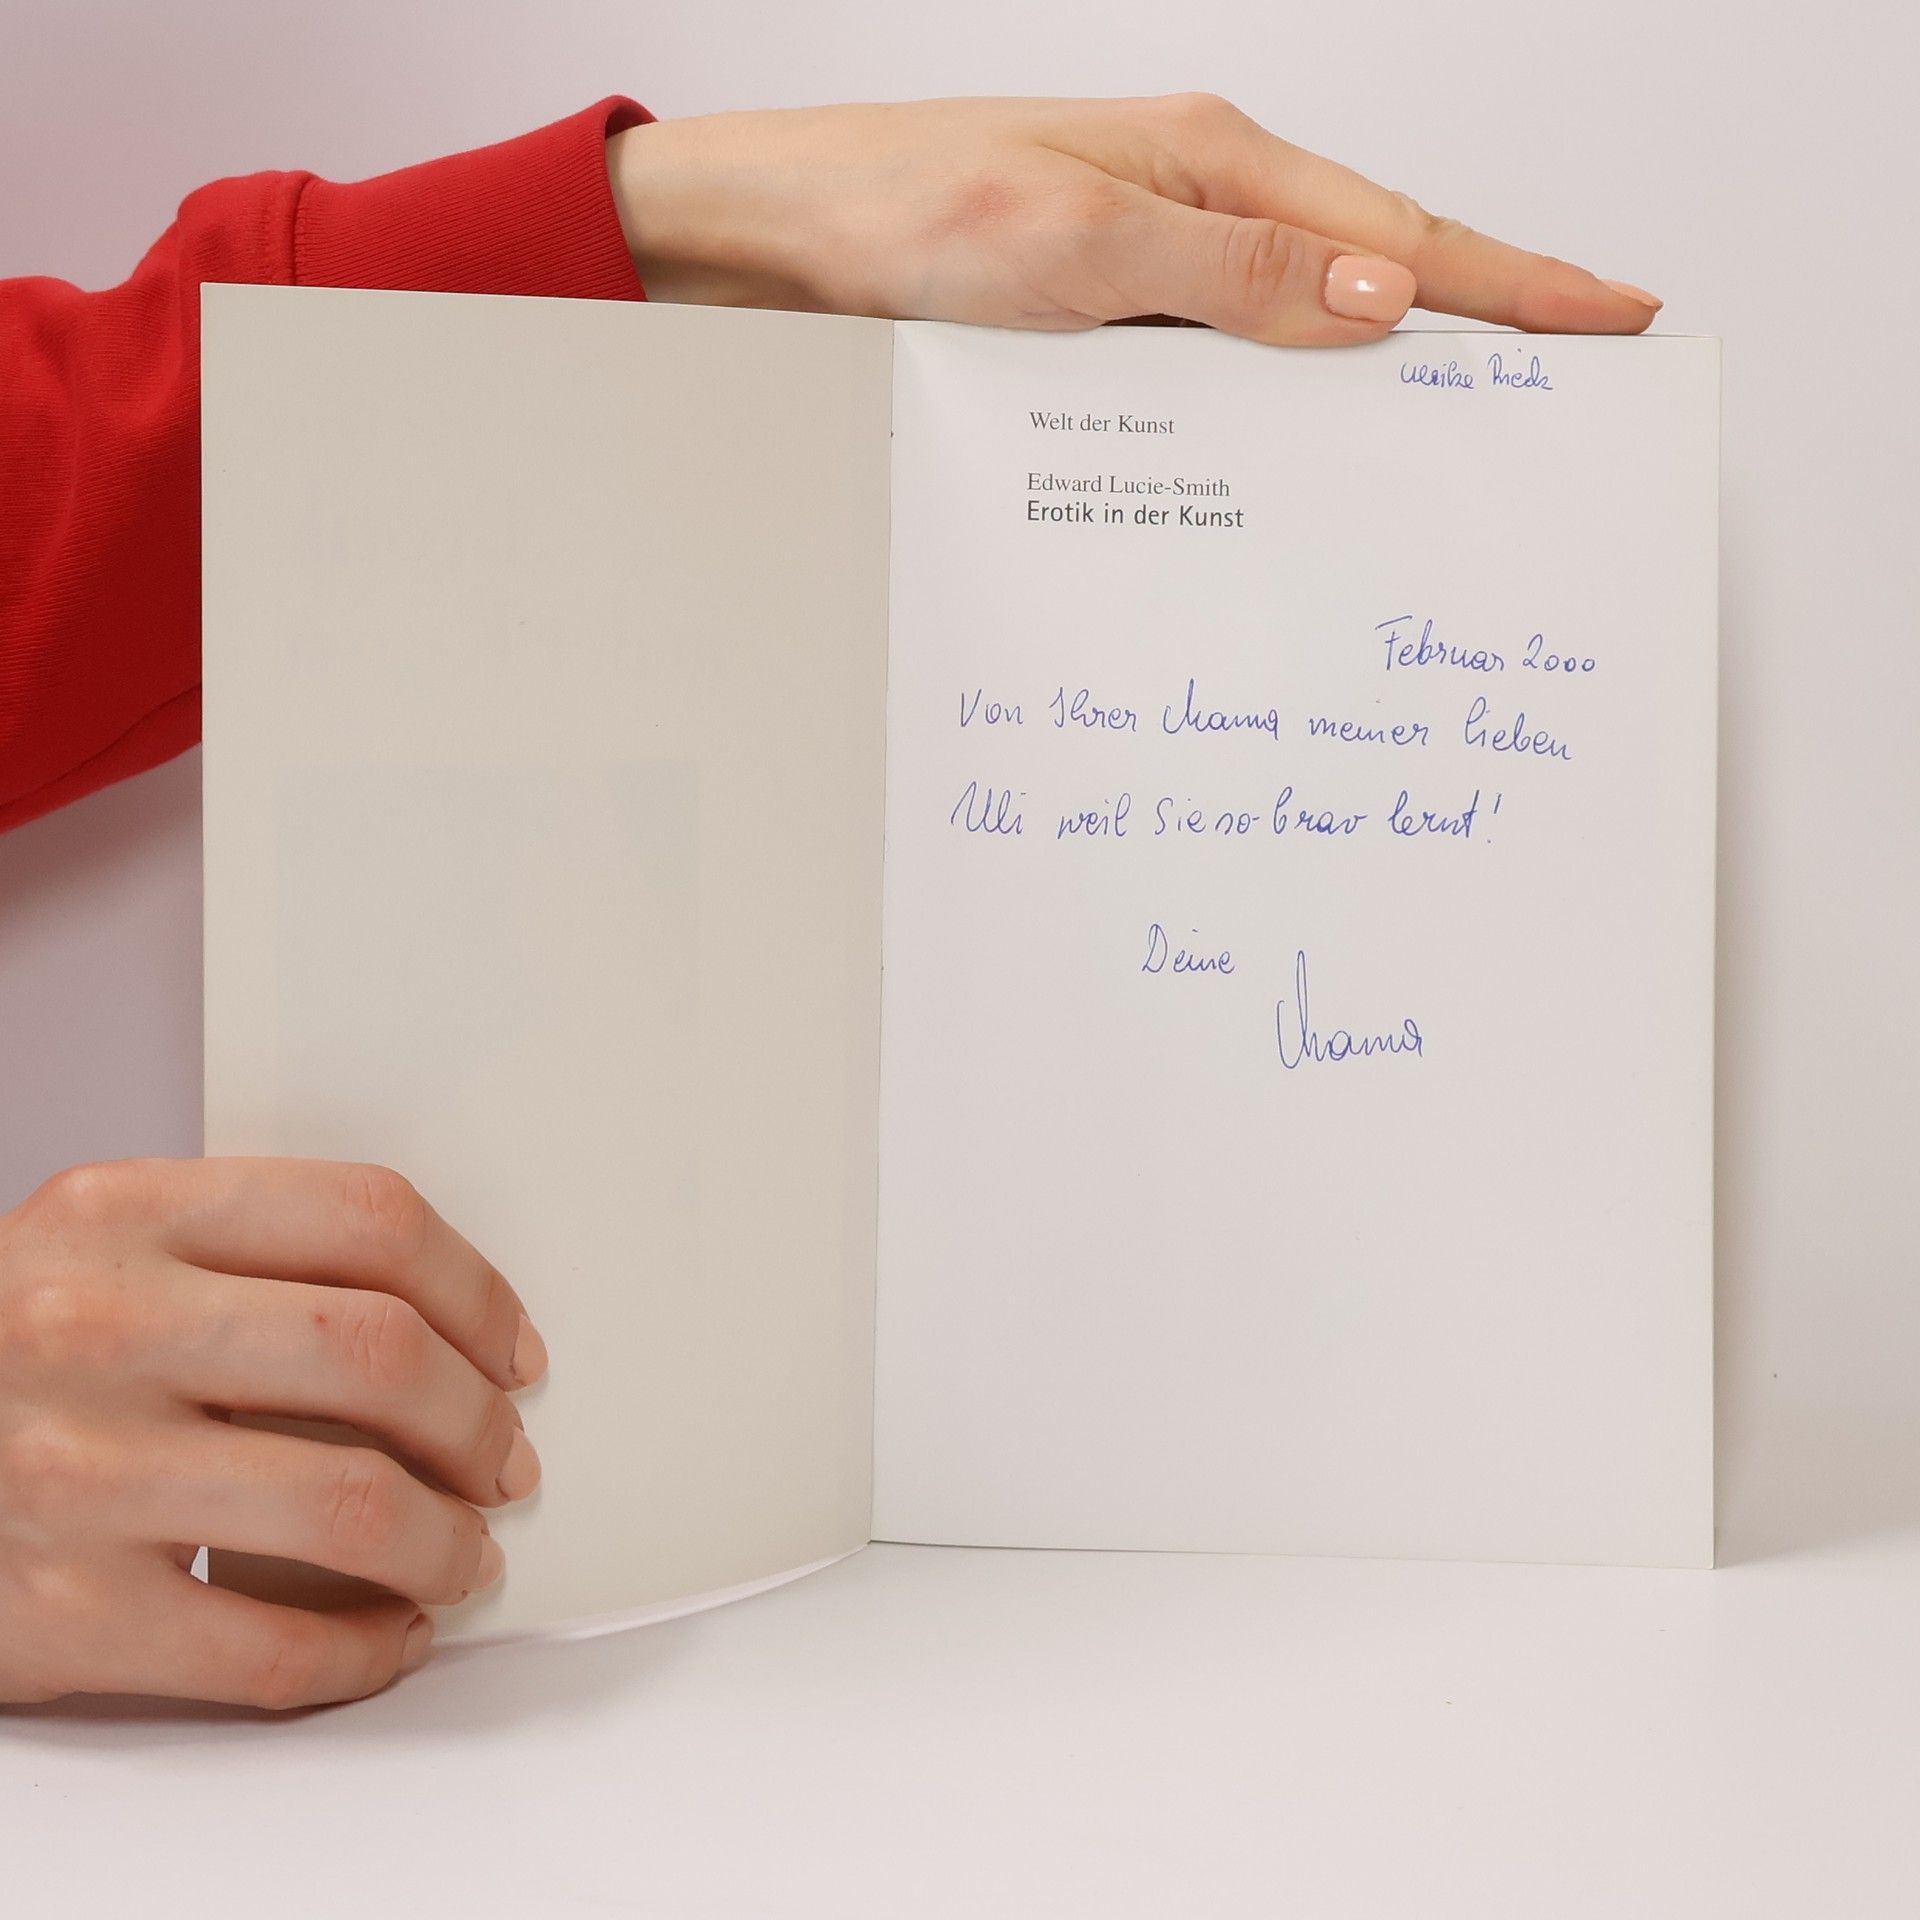 Ulrike Rieck
Welt der Kunst
Edward Lucie-Smith
Erotik in der Kunst
Februar 2000
Von Ihrer Mama meiner lieben
Uli weil Sie so brav lernt!
Deine
Mama